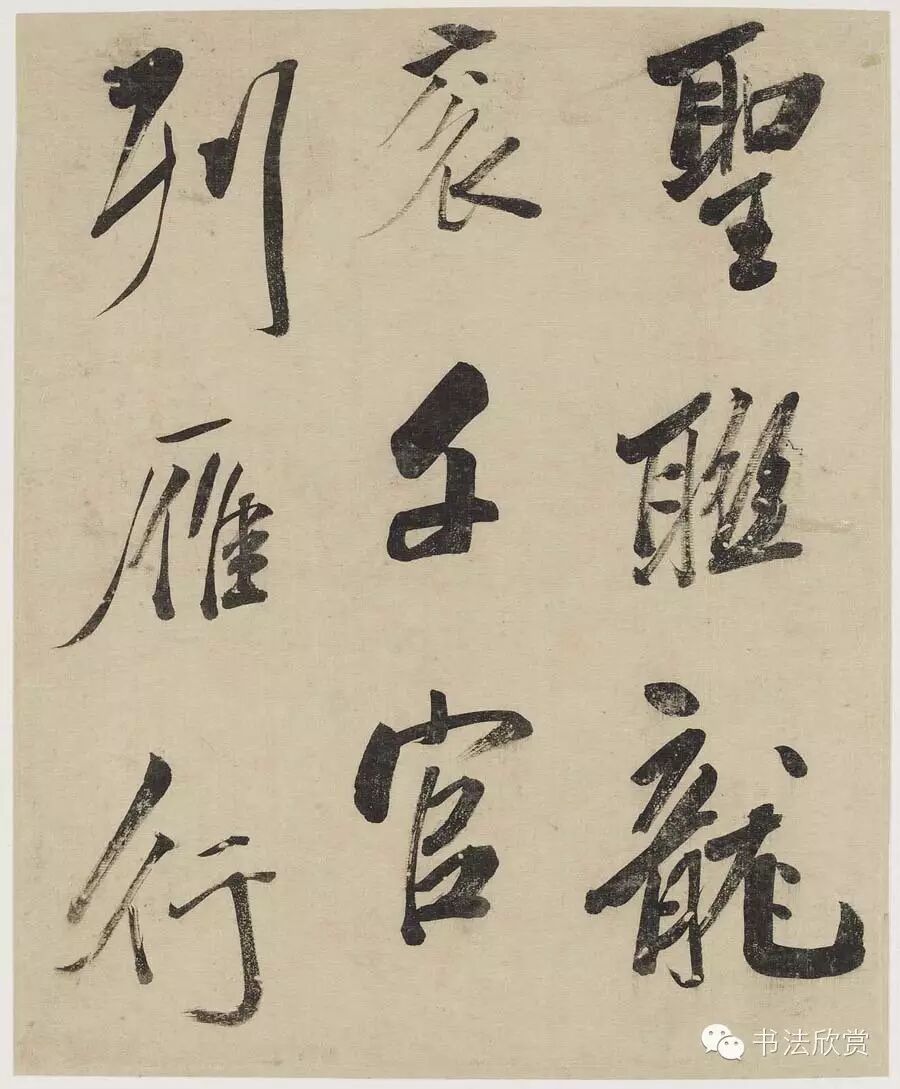 聖聯龍
衮千官
列雁行
书法欣赏